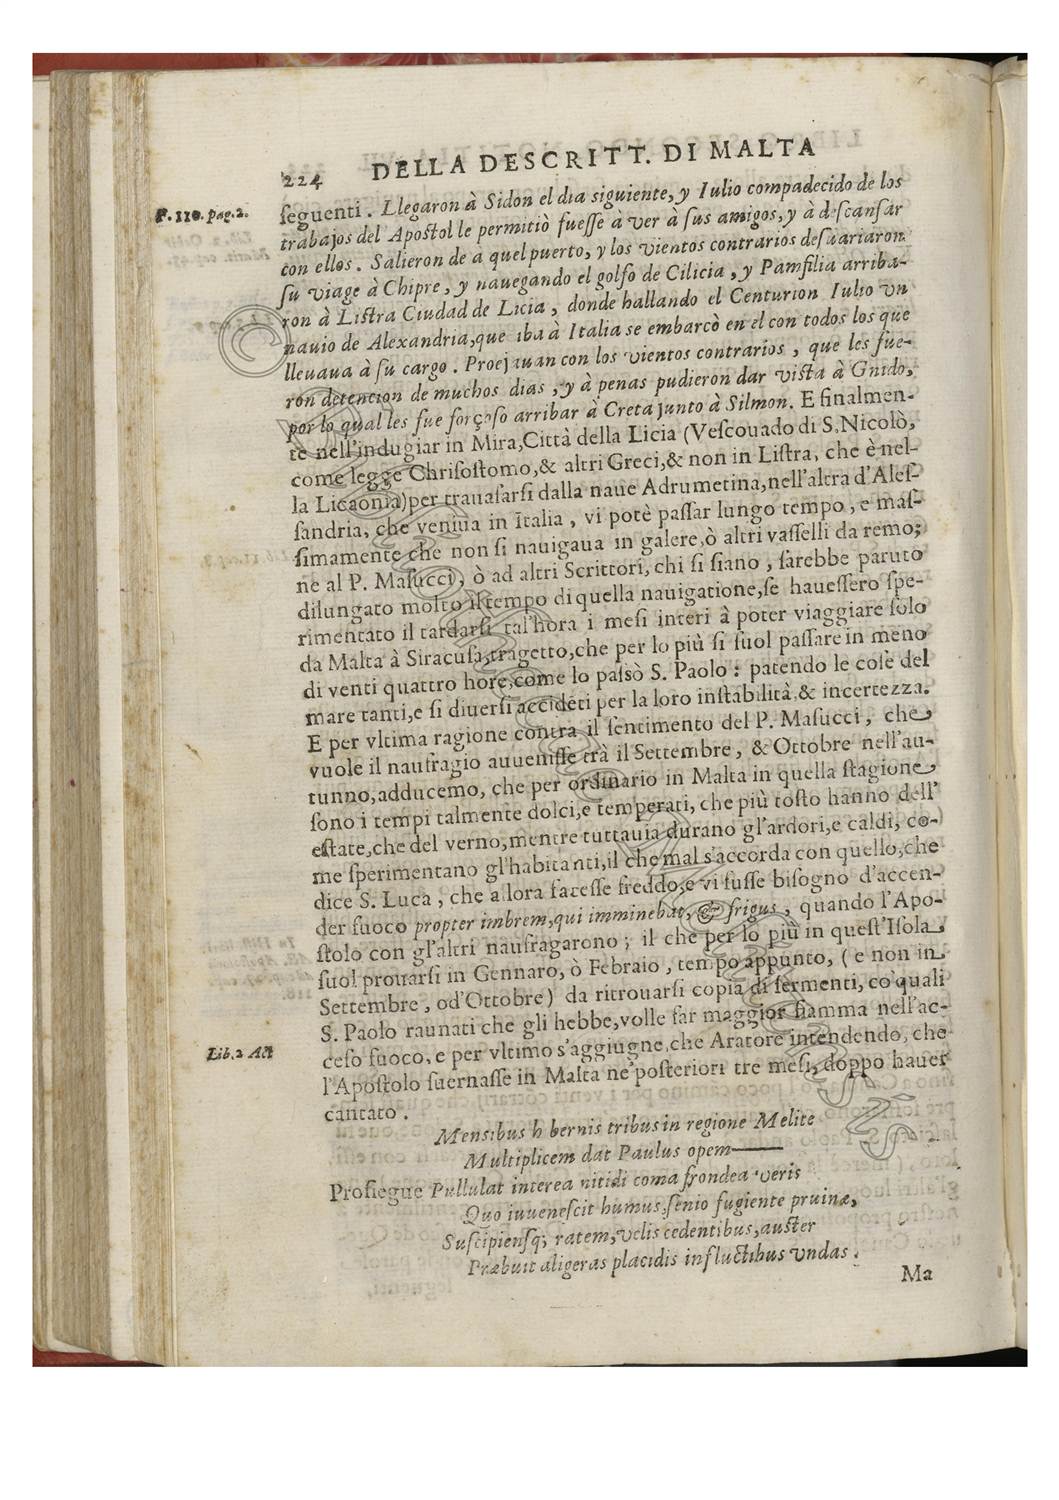 224 DELLA DESCRITT. DI MALTA
F. 110. pag. 2.
ſeguenti. Llegaron à Sidon el dia siguiente, y Iulio compadecido de los
trabajos del Apostol le permitiò fueſſe à ver à ſus amigos, y à deſcanſar
con ellos. Salieron de a quel puerto, y los vientos contrarios deſuariaron
ſu viage à Chipre, y nauegando el golfo de Cilicia, y Pamfilia arriba-
ron à Liſtra Ciudad de Licia, donde hallando el Centurion Iulio vn
nauio de Alexandria, que iba à Italia se embarcò en el con todos los que
lleuaua à ſu cargo. Proejauan con los vientos contrarios, que les fue-
ron detencion de muchos dias, y à penas pudieron dar viſta à Gnido,
por lo qual les fue forçoſo arribar à Creta junto à Silmon. E finalmen-
te nell'indugiar in Mira, Città della Licia (Veſcouado di S. Nicolò,
come legge Chriſoſtomo, & altri Greci, & non in Liſtra, che è nel-
la Licaonia) per trauaſarſi dalla naue Adrumetina, nell'altra d'Aleſ-
ſandria, che veniua in Italia, vi potè paſſar lungo tempo, e maſ-
ſimamente che non ſi nauigaua in galere, ò altri vaſſelli da remo;
ne al P. Maſucci, ò ad altri Scrittori, chi ſi ſiano, ſarebbe paruto
dilungato molto il tempo di quella nauigatione, ſe haueſſero ſpe-
rimentato il tardarſi tal'hora i meſi interi à poter viaggiare ſolo
da Malta à Siracuſa, tragetto, che per lo più ſi ſuol paſſare in meno
di venti quattro hore, come lo paſsò S. Paolo: patendo le coſe del
mare tanti, e ſi diuerſi accidēti per la loro inſtabilità, & incertezza.
E per vltima ragione contra il ſentimento del P. Maſucci, che
vuole il naufragio auueniſſe trà il Settembre, & Ottobre nell'au-
tunno, adducemo, che per ordinario in Malta in quella ſtagione
ſono i tempi talmente dolci, e temperati, che più toſto hanno dell'
eſtate, che del verno, mentre tuttauia durano gl'ardori, e caldi, co-
me ſperimentano gl'habitanti, il che mal s'accorda con quello, che
dice S. Luca, che allora faceſſe freddo, e vi fuſſe biſogno d'accen-
der fuoco propter imbrem, qui imminebat, & frigus, quando l'Apo-
ſtolo con gl'altri naufragarono; il che per lo più in queſt'Iſola
ſuol prouarſi in Gennaro, ò Febraio, tempo appunto, (e non in
Settembre, od'Ottobre) da ritrouarſi copia di ſermenti, co'quali
S. Paolo raunati che gli hebbe, volle far maggior fiamma nell'ac-
ceſo fuoco, e per vltimo s'aggiugne, che Aratore intendendo, che
Lib. 2 Act
l'Apoſtolo ſuernaſſe in Malta ne'poſteriori tre meſi, doppo hauer
cantato.
Mensibus h bernis tribus in regione Melite
Multiplicem dat Paulus opem——
Proſiegue Pullulat interea nitidi coma frondea veris
Quo iuueneſcit humus, ſenio fugiente pruinæ,
Suſcipienſq; ratem, velis cedentibus, auſter
Præbuit aligeras placidis in fluctibus vndas.
Ma